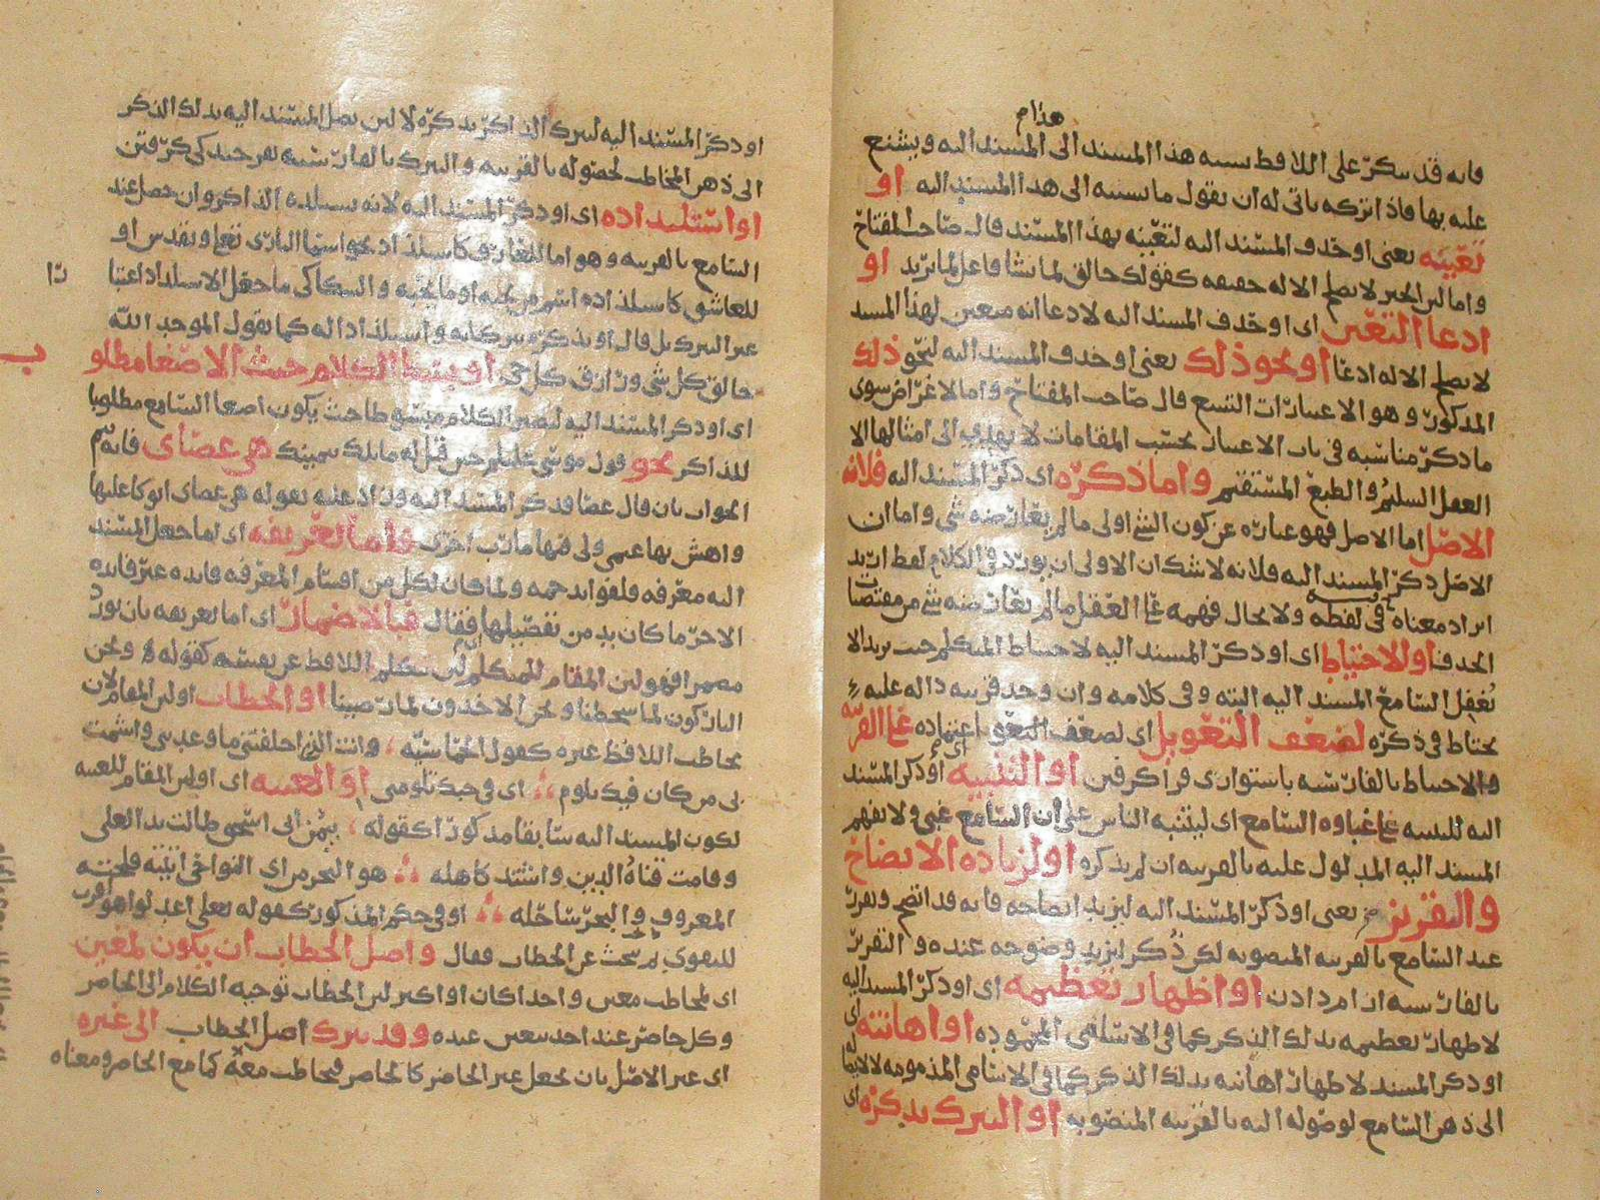 هذا م
فانه قد ينكر على اللافظ نسبة هذا المسند الى المسند اليه ويشنع
عليه بها فاذا تركه ياتى له ان يقول ما نسبته الى هذا المسند اليه او
تعيينه يعنى او حذف المسند اليه لتعينه بهذا المسند قال صاحب المفتاح
واما لان الخبر لا يصلح الا له حقيقة كقولك خالق لما يشا فاعل لما يريد او
ادعا التعين اى او حذف المسند اليه لادعا انه متعين لهذا المسند
لا يصلح الا له ادعا او نحو ذلك يعنى او حذف المسند اليه لنحو ذلك
المذكور وهو الاعتبارات التسع قال صاحب المفتاح واما لاغراض سوى
ما ذكر مناسبة فى باب الاعتبار بحسب المقامات لا يهتدى الى امثالها الا
العقل السليم والطبع المستقيم واما ذكره اى ذكر المسند اليه فلانه
الاصل اما الاصل فهو عبارة عن كون الشى اولى ما لم يعارضه شى واما ان
الاصل ذكر المسند اليه فلانه لا شك ان الاولى ان يورد فى الكلام لفظ اريد
ايراد معناه فى لفظه ولا يحال فهمه على العقل ما لم يعارضه شى من مقتضيات
الحذف او للاحتياط اى او ذكر المسند اليه لاحتياط المتكلم حيث يريد الا
يغفل السامع المسند اليه البته وفى كلامه وان وجد قرينة دالة عليه
يحتاط فى ذكره لضعف التعويل اى لضعف التعويل اعتماده على القرينة
والاحتياط بالفارسية باستوارى فرا گرفتن او التنبيه او ذكر المسند
اليه للتنبيه على غباوة السامع اى ليتنبه الناس على ان السامع غبى ولا يفهم
المسند اليه المدلول عليه بالقرينة ان لم يذكره او لزيادة الايضاح
والتقرير يعنى او ذكر المسند اليه ليزيد ايضاحه فانه قد اتضح وتقرر
عند السامع بالقرينة المنصوبة لكن ذكر ليزيد وضوحه عنده والتقرير
بالفارسية ارامردادن او اظهار تعظيمه اى او ذكر المسند اليه
لاظهار تعظيمه بذلك الذكر كما فى الاسامى المحمودة او اهانته اى
او ذكر المسند لاظهار اهانته بذلك الذكر كما فى الاسامى المذمومة لا لايقا
الى ذهن السامع لوصوله اليه بالقرينة المنصوبة او التبرك بذكره اى
او ذكر المسند اليه لتبرك الذاكر بذكره لا لان يصل المسند اليه بذلك الذكر
الى ذهن المخاطب لحصوله بالقرينة والتبرك بالفارسية بفرخندكى كرفتن
او استلذاذه اى او ذكر المسند اليه لانه يستلذه الذاكر وان حصل عند
السامع بالقرينة وهو اما للعارف كاستلذاذ نحو اسما البارى تعالى وتقدس او
للعاشق كاستلذاذه اسم من يحبه او ما يحبه والسكاكى ما جعل الاستلذاذ اعتبا
را
غير التبرك بل قال او يذكر تبركا به واستلذاذا له كما يقول الموحد الله
خالق كل شى ورازق كل حى او بسط الكلام حيث الاصغا مطلو
ب
اى او ذكر المسند اليه ليصير الكلام مبسوطا حيث يكون اصغا السامع مطلوبا
للذاكر نحو قول موسى عليلم حين قيل له ما تلك بيمينك هى عصاى فانه تم
الجواب بان قال عصا فذكر المسند اليه وزاد عليه بقوله هى عصاى اتوكا عليها
واهش بها غنمى ولى فيها مارب اخرى واما تعريفه اى اما جعل المسند
اليه معرفة فلفوايد جمة ولما كان لكل من اقسام المعرفة فايدة غير فايدة
الاخر ما كان بد من تفصيلها فقال فبالاضمار اى اما تعريفه بان يورد
مضمرا فهو لان المقام للمتكلم اى يتكلم اللافظ عن نفسه كقوله ونحن
التاركون لما سخطنا ونحن الاخذون لما رضينا او الخطاب او لان المقام لان
يخاطب اللافظ غيره كقول الحماسية وانت الذى اخلفتنى ما وعدتنى واشمت
بى من كان فيك يلوم اى فى حبك تلومنى او الغيبة اى او لان المقام للغيبة
لكون المسند اليه سابقا مذكورا كقوله بيمن ابى اسحق طالت يد العلى
وقامت قناة الدين واشتد كاهله هو البحر من اى النواحى اتيته فلجته
المعروف والبحر ساحله او فى حكم المذكور كقوله تعالى اعدلوا هو اقرب
للتقوى ثم بحث عن الخطاب فقال واصل الخطاب ان يكون لمعين
اى لمخاطب معين واحدا كان او اكثر لان الخطاب توجيه الكلام الى الحاضر
وكل حاضر عند احد متعين عنده وقد يترك اصل الخطاب الى غيره
اى غير الاصل بان يجعل غير الحاضر كالحاضر فيخاطب معه كما مع الحاضر ومعناه